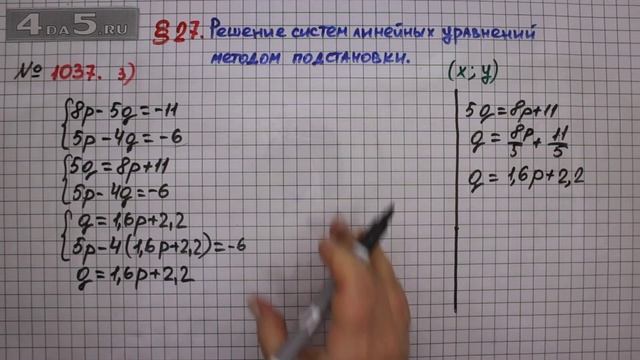 4DA5.RU
§27. Решение систем линейных уравнений
методом подстановки.
№ 1037. 3)
(x; y)
8p-5q=-11
5p-4q=-6
5q=8p+11
5p-4q=-6
q=1,6p+2,2
5p-4(1,6p+2,2)=-6
q=1,6p+2,2
5q=8p+11
q=8p/5+11/5
q=1,6p+2,2